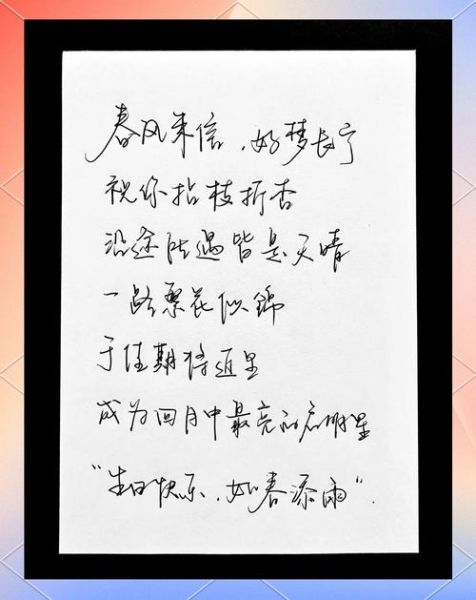 春风来信，好梦长宁
祝你拈枝折杏
沿途所遇皆是天晴
一路繁花似锦
于佳期将近里
成为四月中最亮的启明星
“生日快乐，如春添雨”.